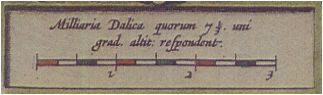 Milliaria Dalica quorum 7½ uni
grad. altit. reſpondent.
1 2 3